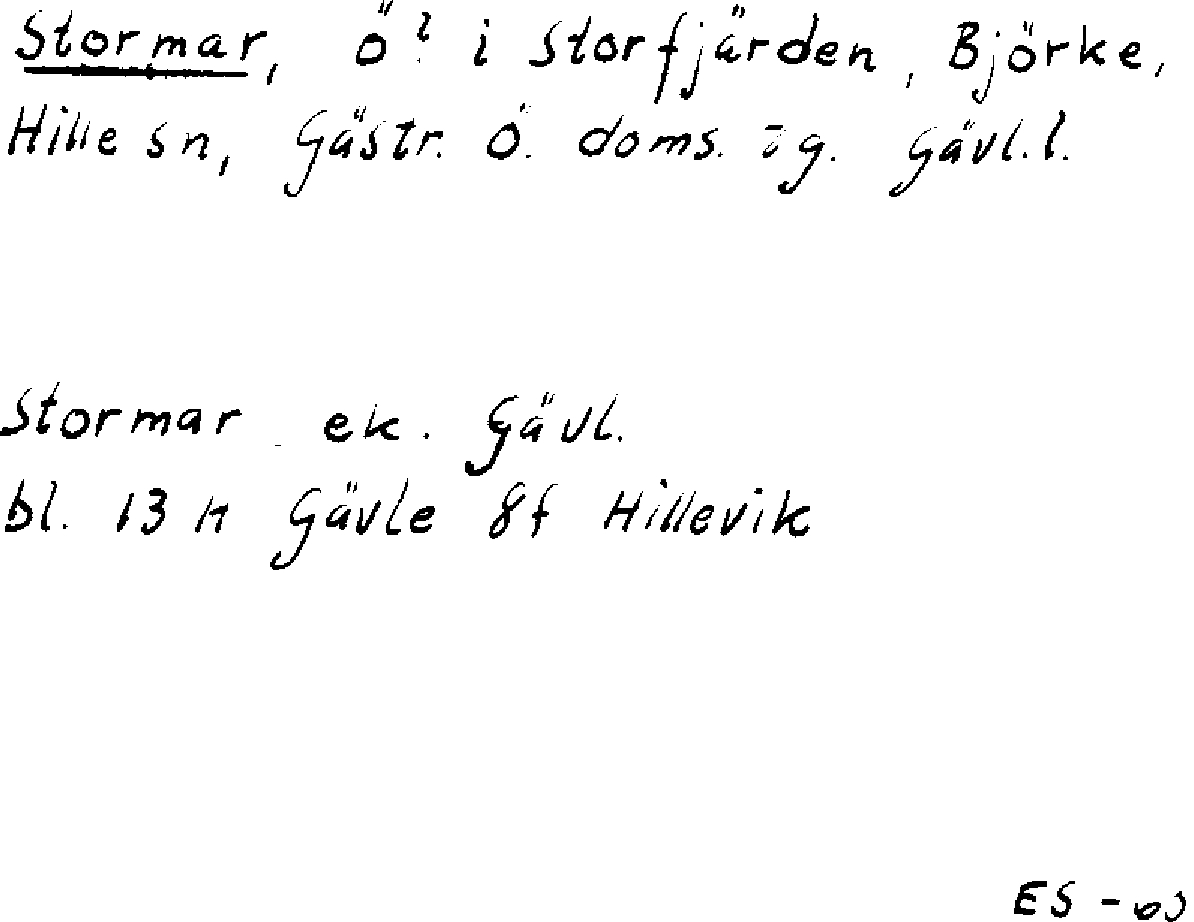 Stormar, ö? i Storfjärden, Björke,
Hille sn, Gästr. Ö. doms. äg. Gävl.l.
Stormar ek. Gävl.
bl. 13 H Gävle 8f Hillevik
ES